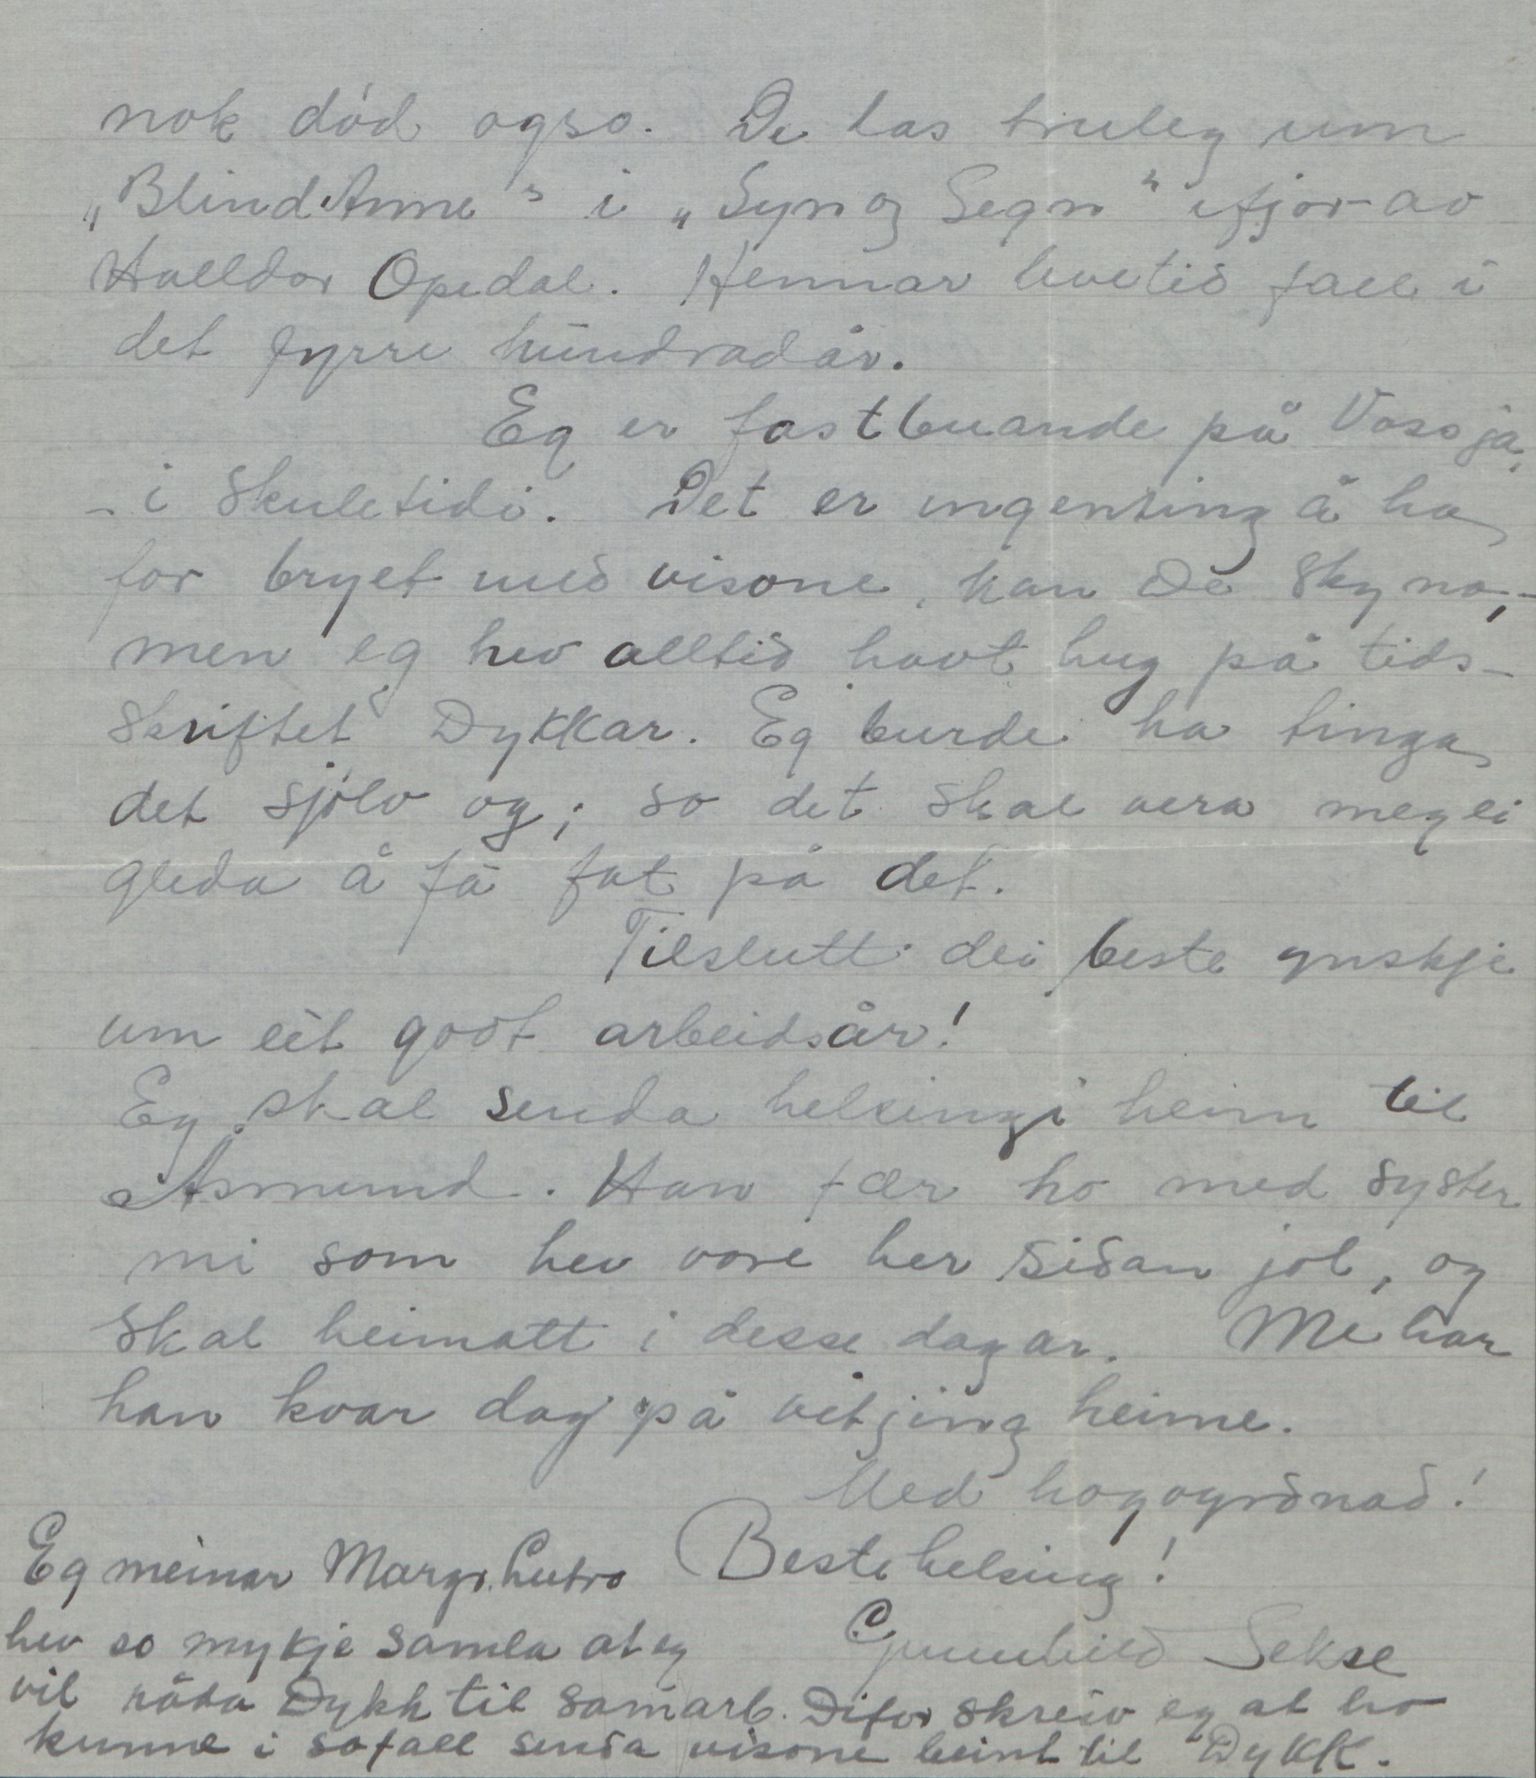 nok död ogso. De las truleg um
„Blind Anne" i „Syn og Segn" ifjor av
Halldor Opedal. Hennar livetid fall i
det fyrre hundradår.
Eg er fastbuande på Voss ja,
- i skuletidi. Det er ingenting å ha
for bryet med visone, kan De skyna, -
men eg hev alltid havt hug på tids-
skriftet Dykkar. Eg burde ha tinga
det sjölv og; so det skal vera meg ei
gleda å få fat på det.
Tilslutt dei beste ynskje
um eit godt arbeidsår!
Eg skal senda helsingi heim til
Åsmund. Han fær ho med syster
mi som hev vore her sidan jol, og
skal heimatt i desse dagar. Me har
han kvar dag på vitjing heime.
Med högvyrdnad!
Beste helsing!
Gunnhild Sekse
Eg meinar Margr. Lutro
hev so mykje samla at eg
vil råda Dykk til samarb. Difor skreiv eg at ho
kunne i sofall senda visone beint til Dykk.